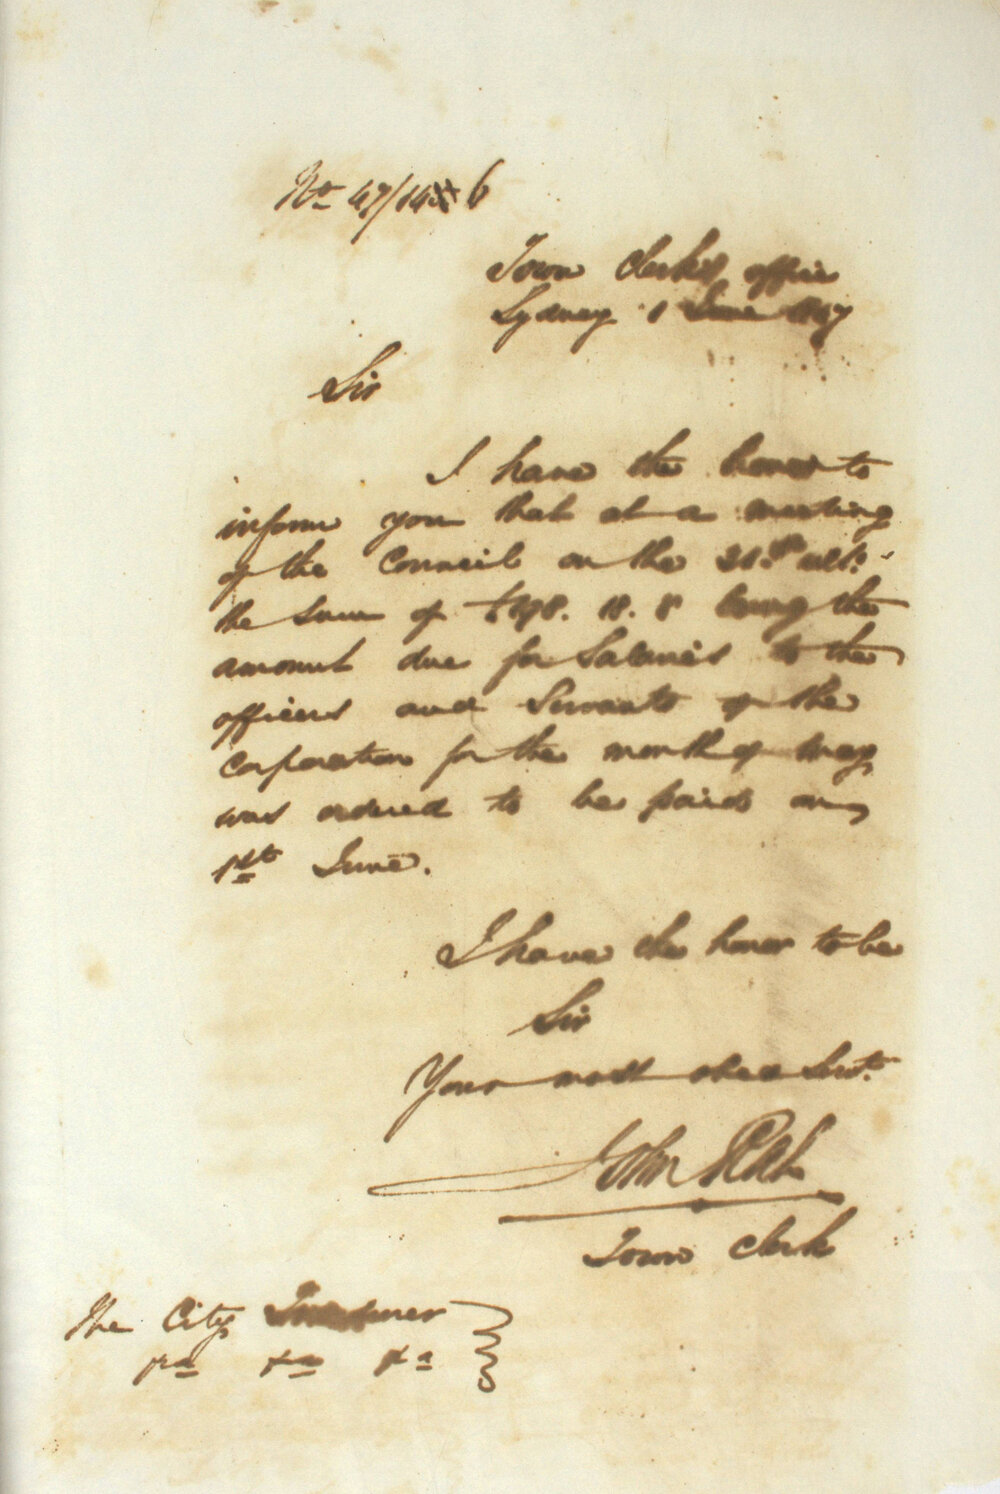 No 47/14 6
Town Clerk's office
Sydney 1 June 1847
Sir
I have the honor to
inform you that at a meeting
of the Council on the 31st ulto.
the Sum of £198. 18. 8 being the
amount due for Salaries to the
officers and Servants of the
Corporation for the month of May
was ordered to be paid on
1st June.
I have the honor to be
Sir
Your most obed Servt.
John
Town Clerk
The City Treasurer